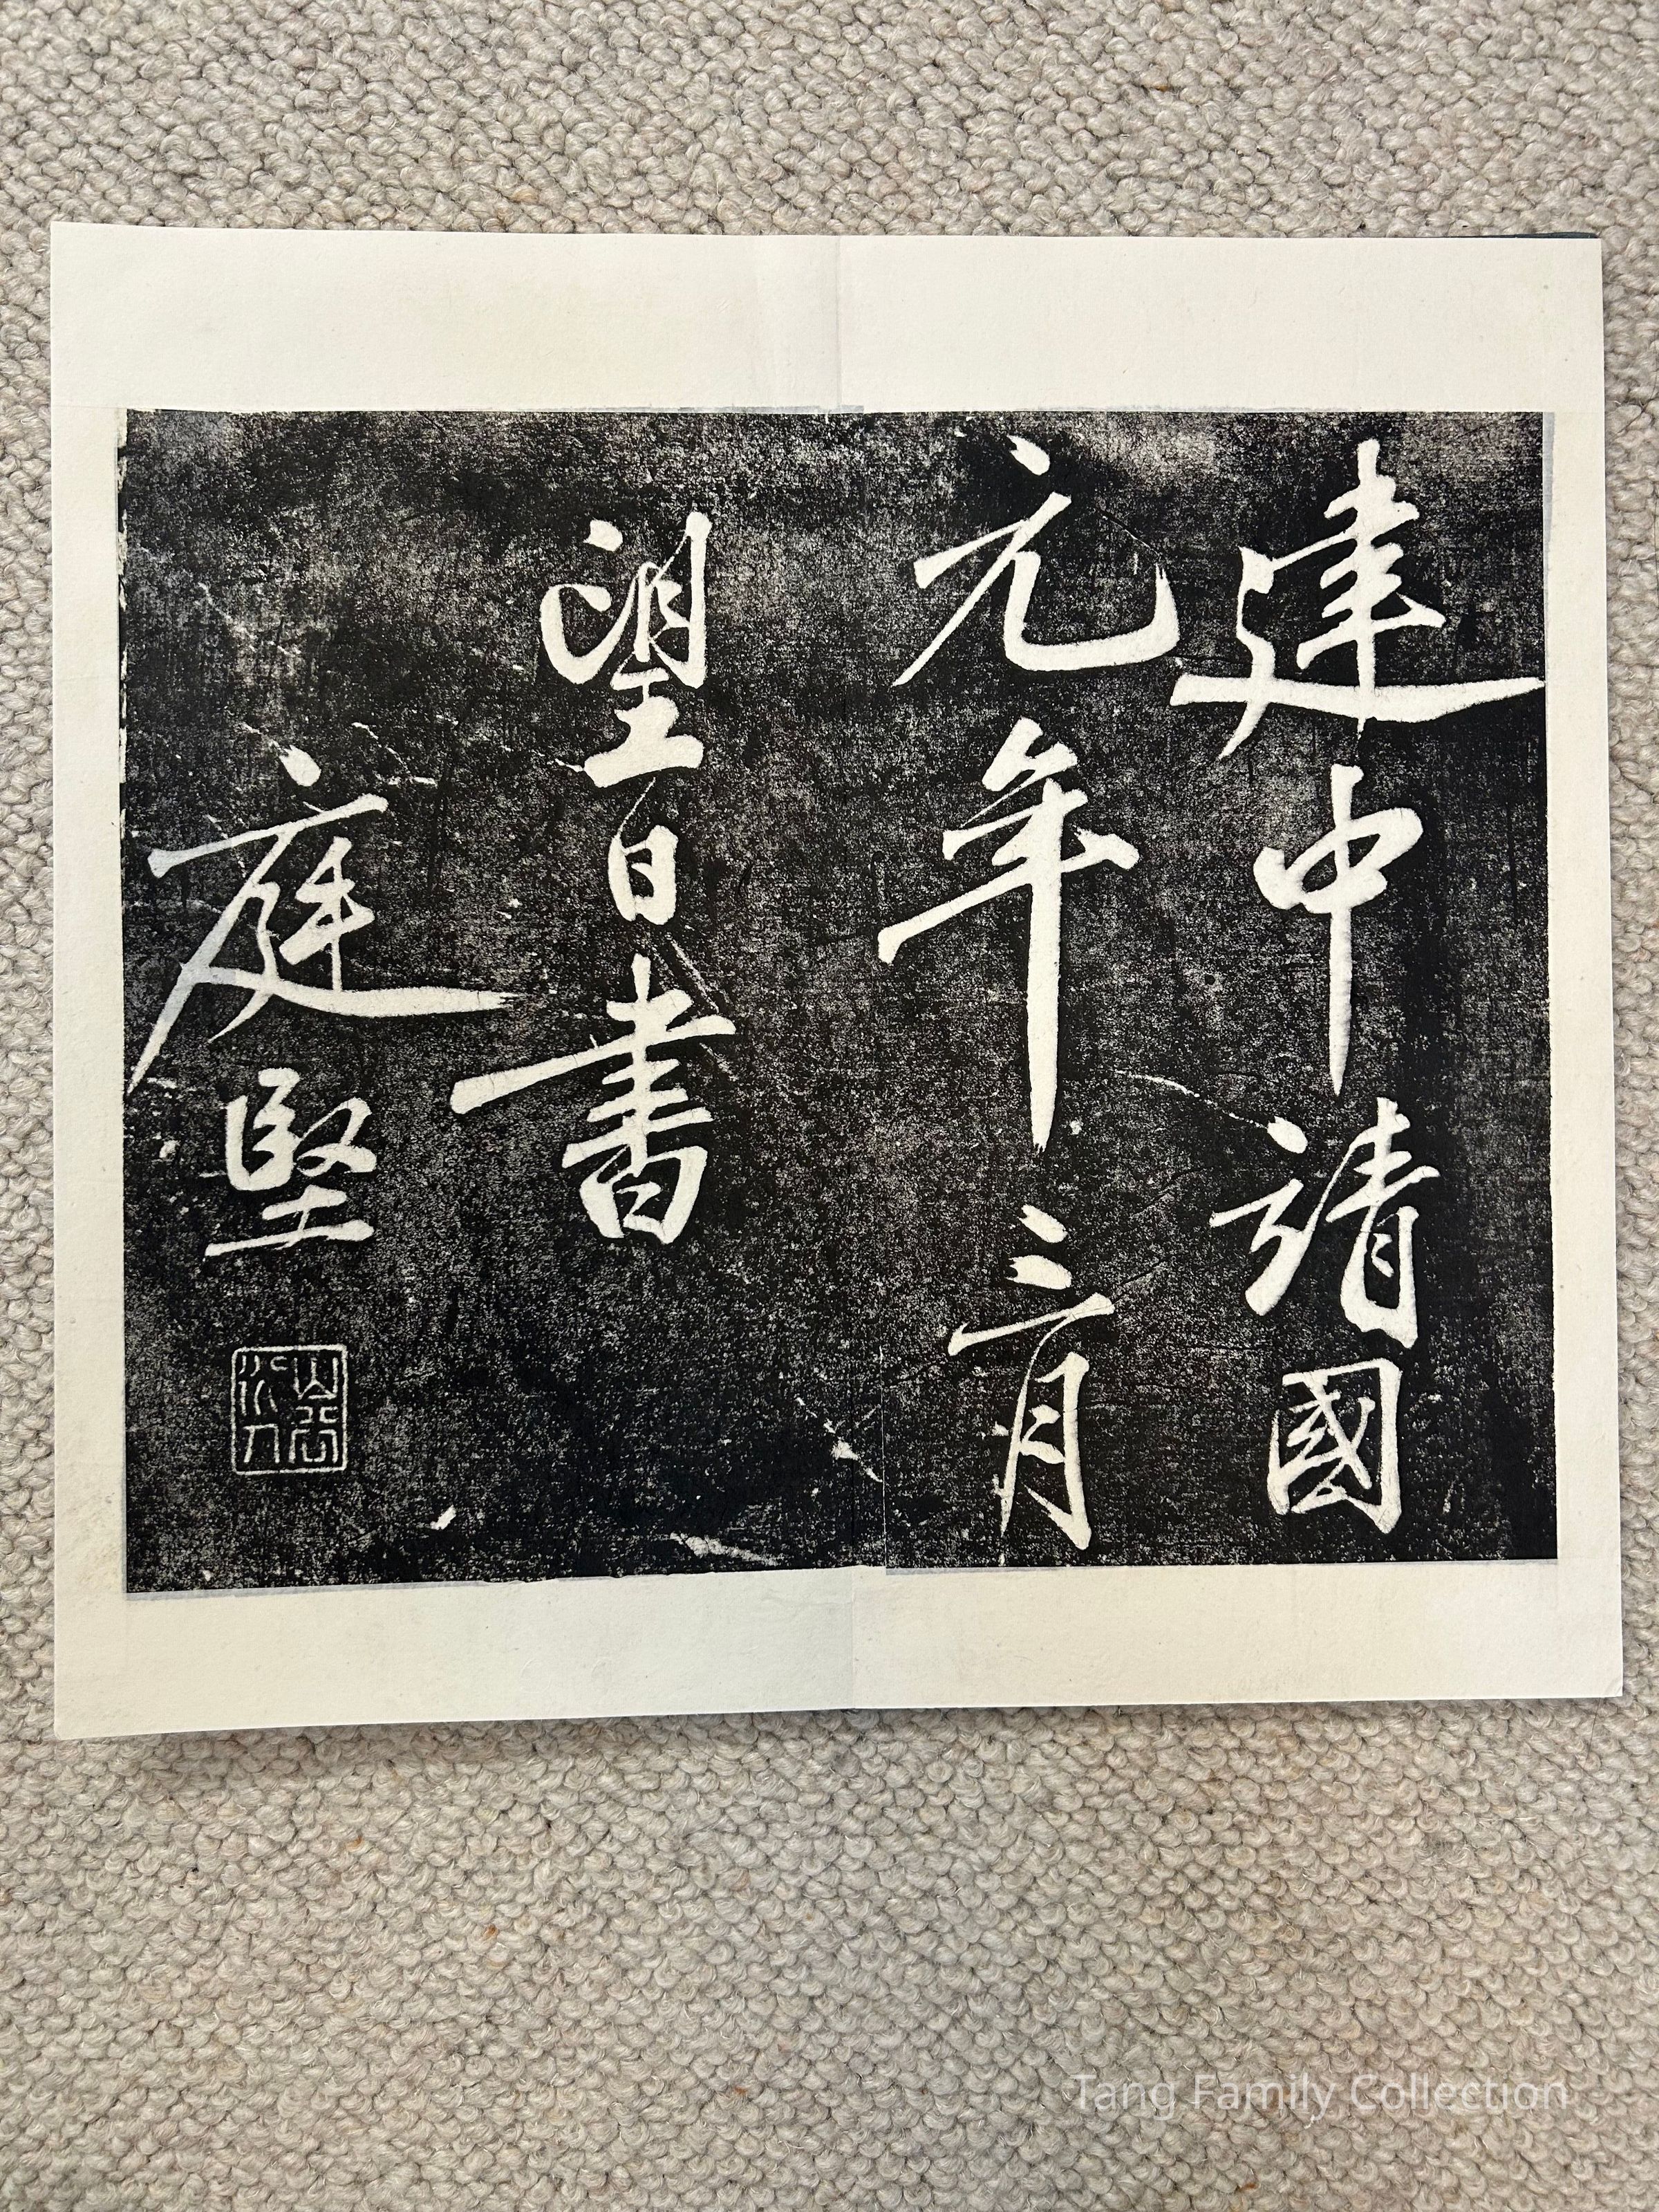 建中靖國
元年三月
望日書
庭堅
Tang Family Collection